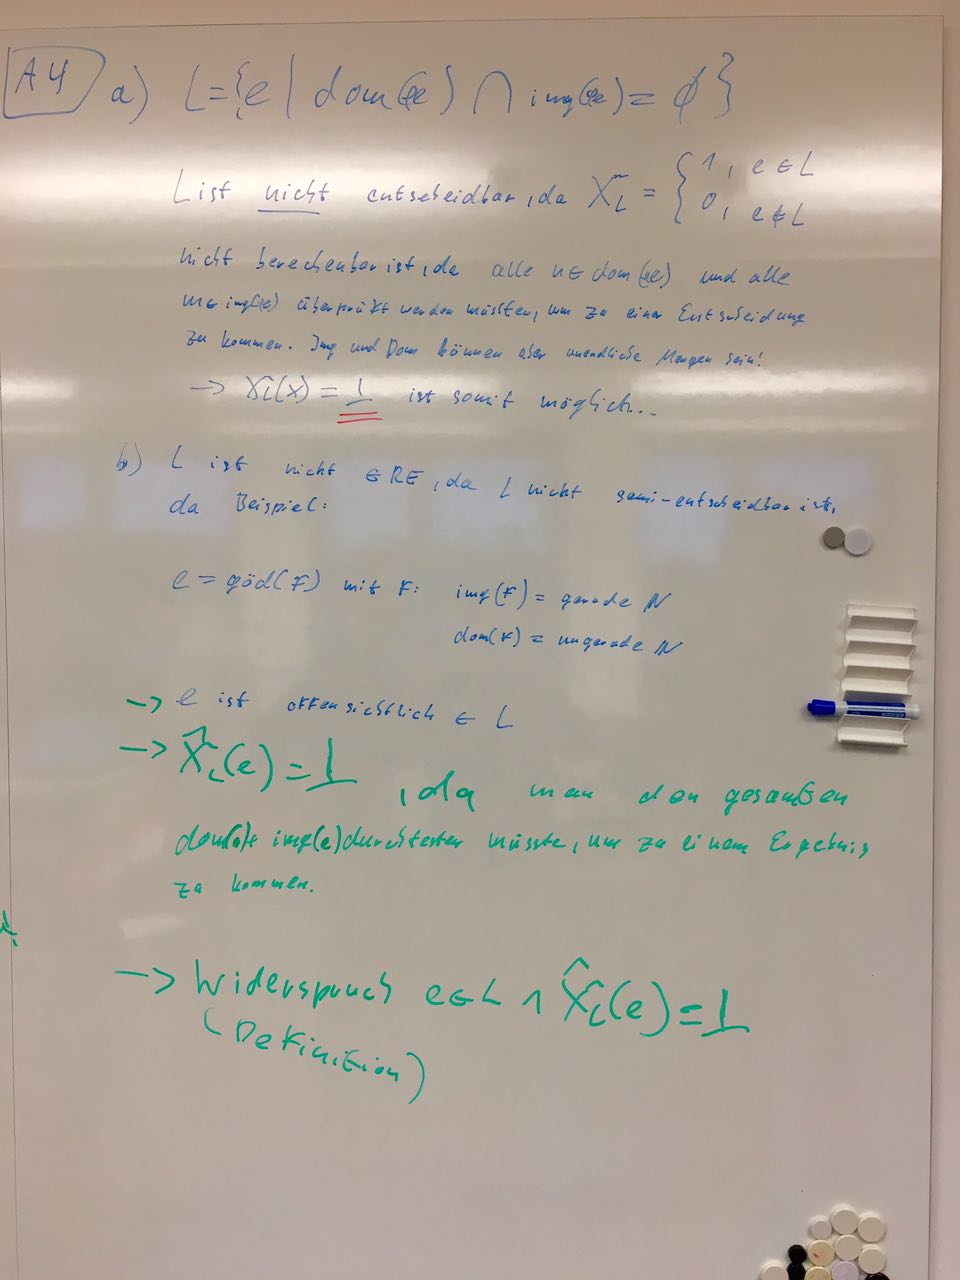 A4 a) L = {e | dom(φe) ∩ img(φe) = ∅}
L ist nicht entscheidbar, da χL = { 1, e ∈ L
0, e ∉ L
nicht berechenbar ist, da alle n ∈ dom(φe) und alle
m ∈ img(e) überprüft werden müssten, um zu einer Entscheidung
zu kommen. Img und Dom können aber unendliche Mengen sein!
→ χL(x) = ⊥ ist somit möglich..
b) L ist nicht ∈ RE, da L nicht semi-entscheidbar ist,
da Beispiel:
e = göd(F) mit F: img(F) = gerade ℕ
dom(F) = ungerade ℕ
→ e ist offensichtlich ∈ L
→ χ̂L(e) = ⊥ , da man den gesamten
dom(e)+ img(e) durchtesten müsste, um zu einem Ergebnis
zu kommen.
→ Widerspruch e ∈ L ∧ χ̂L(e) = ⊥
(Definition)